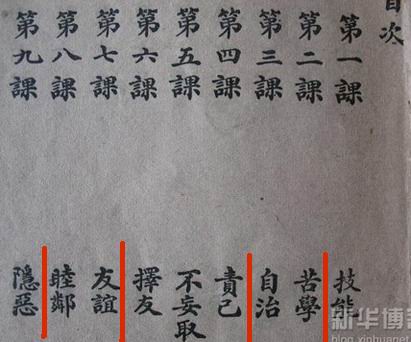 目次
第一課 技能
第二課 苦學
第三課 自治
第四課 責己
第五課 不妄取
第六課 擇友
第七課 友誼
第八課 睦鄰
第九課 隱惡
新华博客
blog.xinhuanet